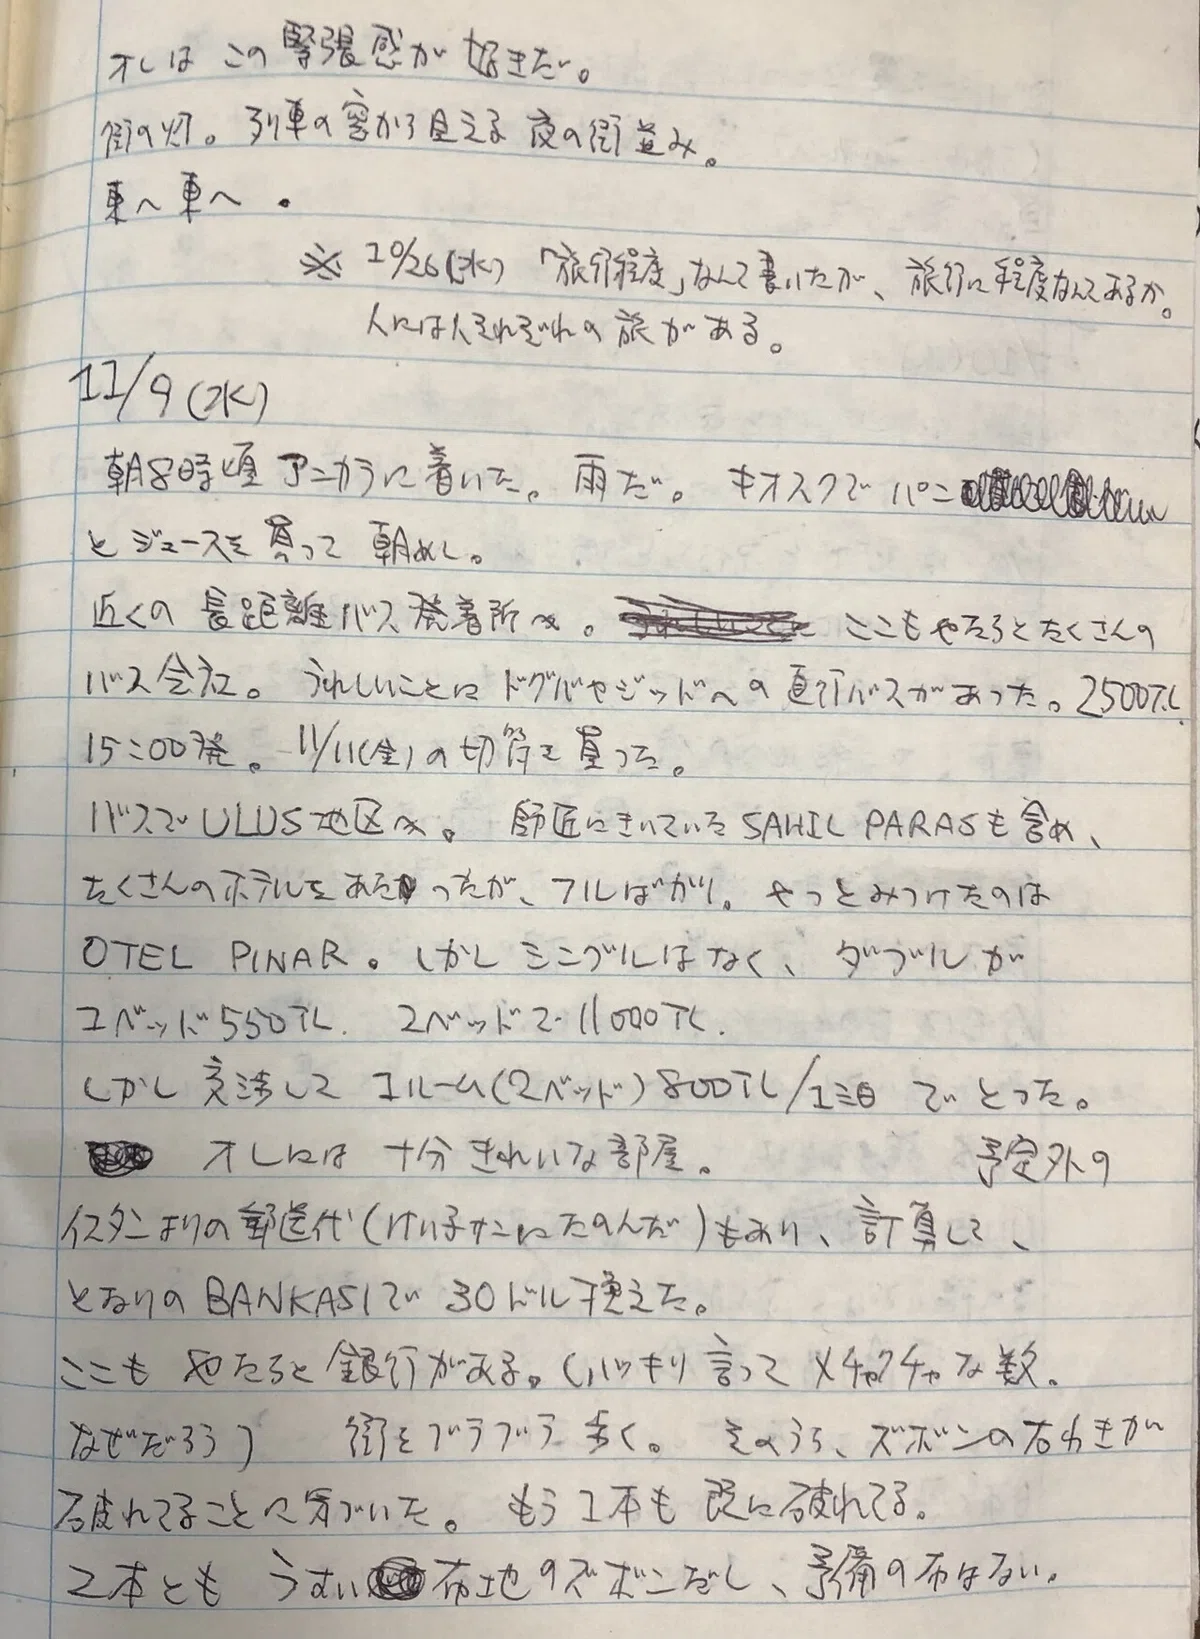 オレは この 緊張感が 好きだ。
街の灯。列車の窓から見える 夜の街並み。
東へ 東へ 。
※ 10/26(水)「旅行程度」なんて書いたが、旅行に程度なんてあるか。
人には人それぞれの 旅が ある。
11/9(水)
朝8時頃 アンカラに着いた。雨だ。 キオスクで パン
と ジュースを 買って 朝めし。
近くの 長距離バス発着所へ。 ここも やたらと たくさんの
バス会社。うれしいことに ドグバヤジッドへの 直行バスがあった。2500TL
15:00発。 11/11(金)の切符を 買った。
バスで ULUS地区へ。 師匠にきいていた SAHIL PARASも含め、
たくさんのホテルを あたったが、フルばかり。やっとみつけたのは
OTEL PINAR。しかし シングルはなく、 ダブルが
1ベッド550TL. 2ベッドで 11000TL.
しかし 交渉して 1ルーム(2ベッド) 800TL/1泊 で とった。
オレには 十分 きれいな 部屋。 予定外の
イスタンよりの 郵送代(けい子サンにたのんだ)もあり、計算して、
となりの BANKASIで 30ドル換えた。
ここも やたらと 銀行がある。(ハッキリ 言って メチャクチャな 数。
なぜだろう) 街を ブラブラ 歩く。 そのうち、ズボンの右わきが
破れてることに 気づいた。 もう1本も 既に 破れてる。
2本とも うすい 布地のズボンだし、予備の布はない。